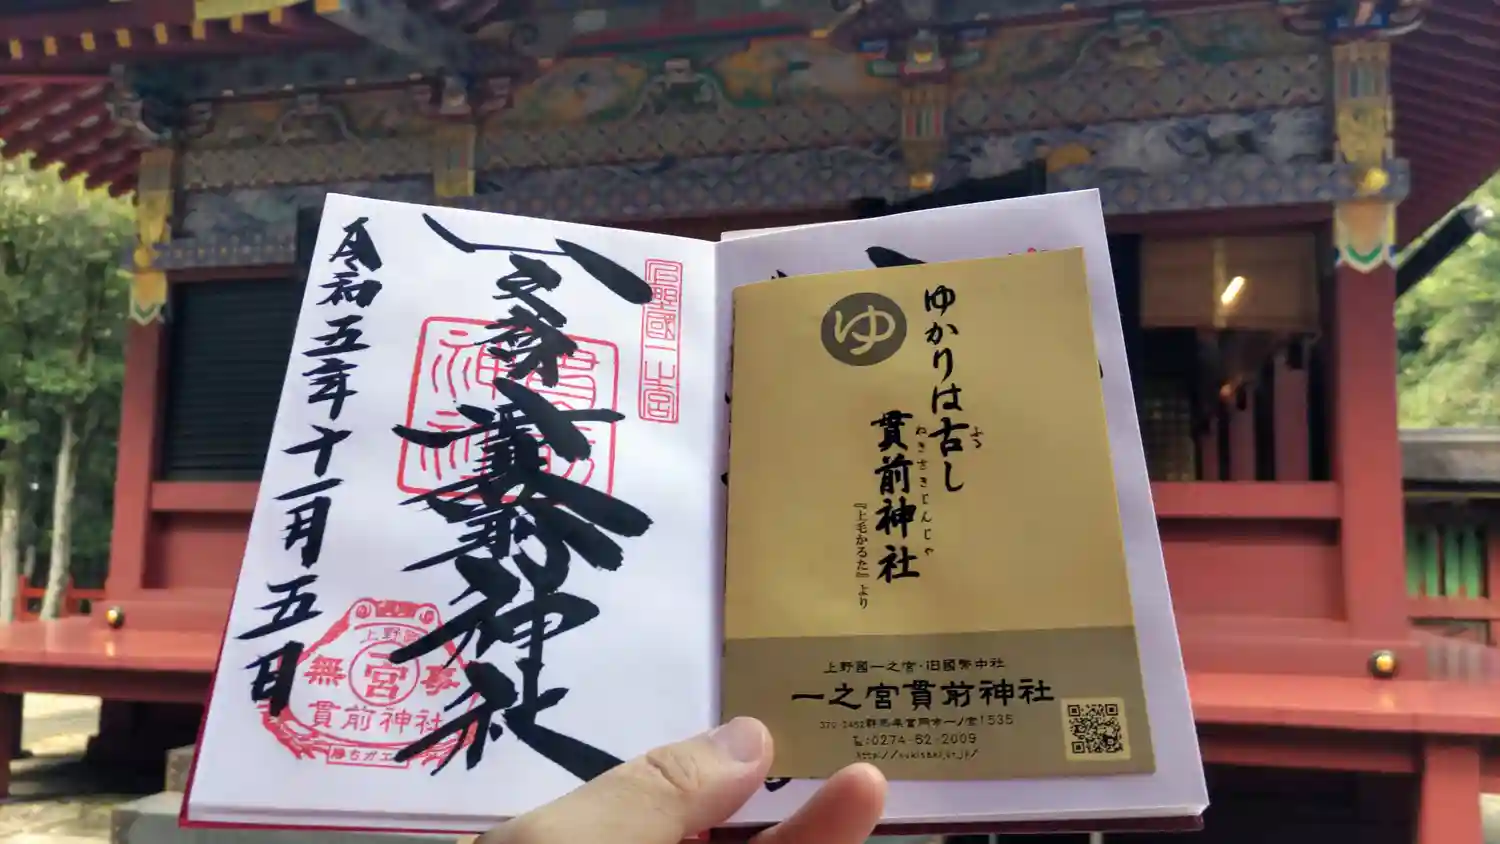 上野國一之宮
一之宮貫前神社
貫前神社
令和五年十一月五日
上野國
無宮事
貫前神社
勝ちガエル
ゆ
ゆかりは古し
ふる
貫前神社
ぬきさきじんじゃ
『上毛かるた』より
上野國一之宮・旧國幣中社
一之宮貫前神社
370-2452群馬県富岡市一ノ宮1535
℡:0274-62-2009
http://nukisaki.or.jp/